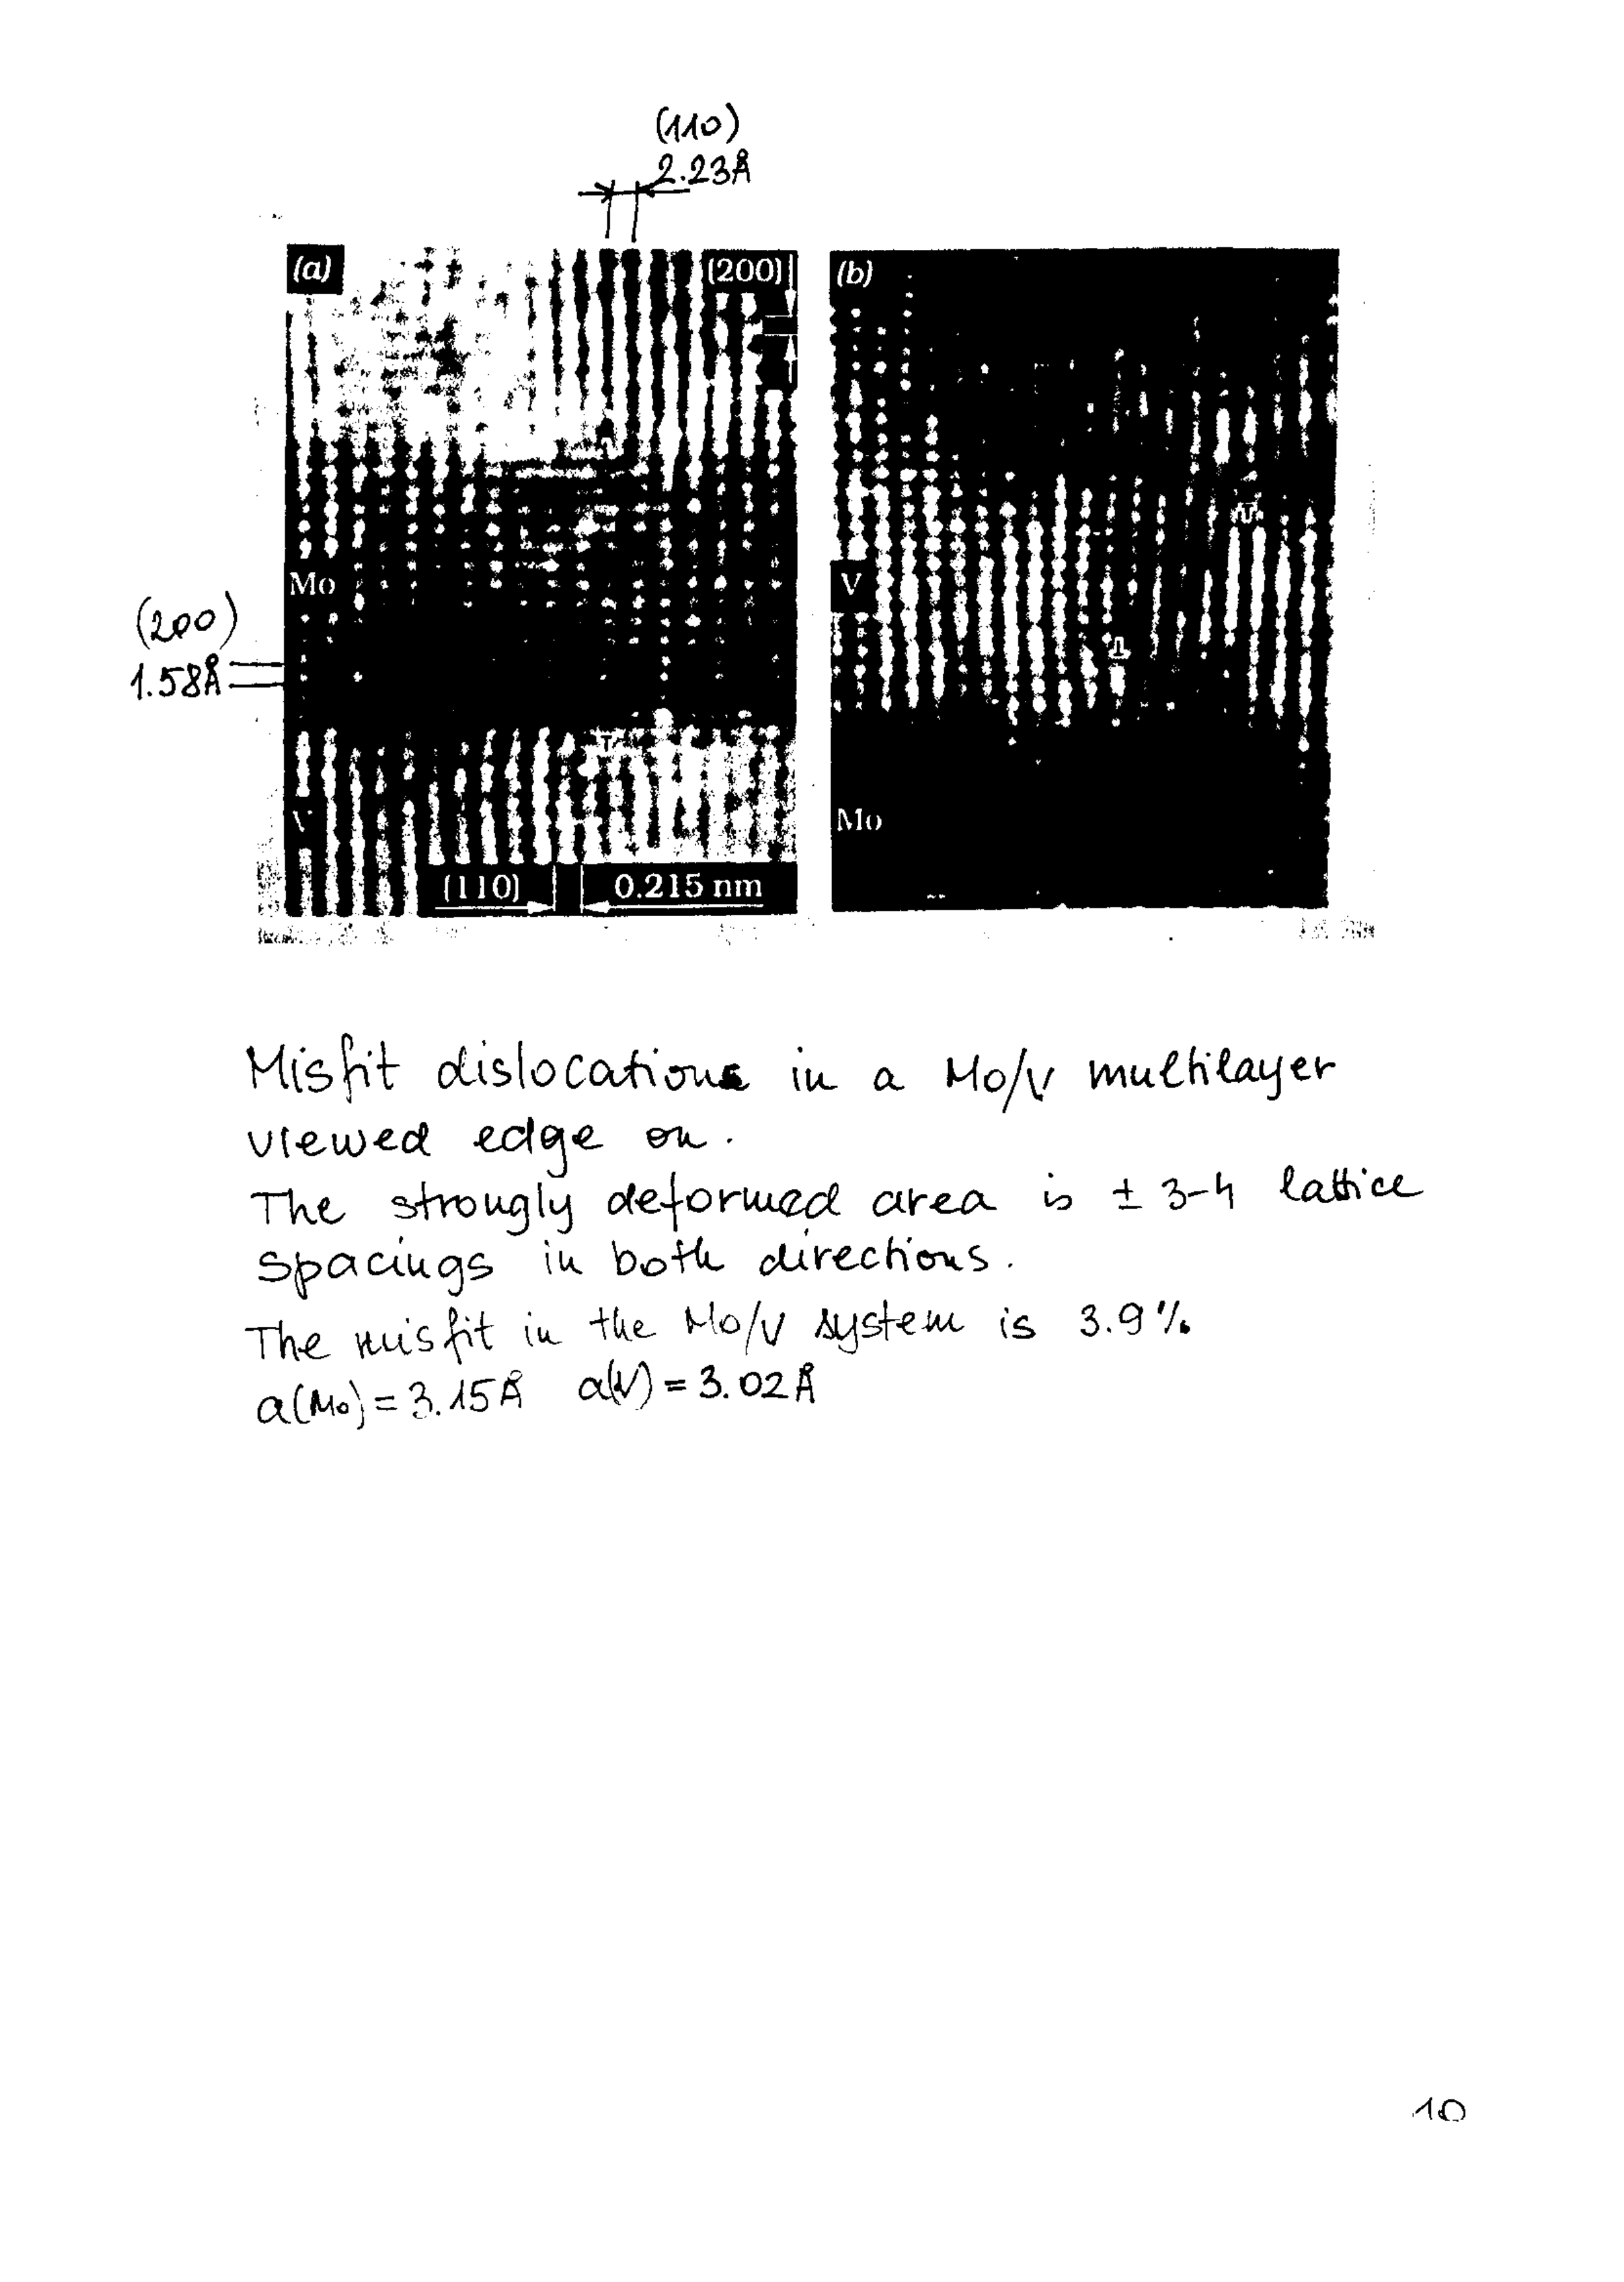 (110)
2.23Å
(a)
(200)
(b)
Mo
V
(200)
1.58Å
V
Mo
(110) 0.215 nm
Misfit dislocations in a Mo/V multilayer
viewed edge on.
The strongly deformed area is ± 3-4 lattice
spacings in both directions.
The misfit in the Mo/V system is 3.9%
a(Mo) = 3.15Å a(V) = 3.02Å
10